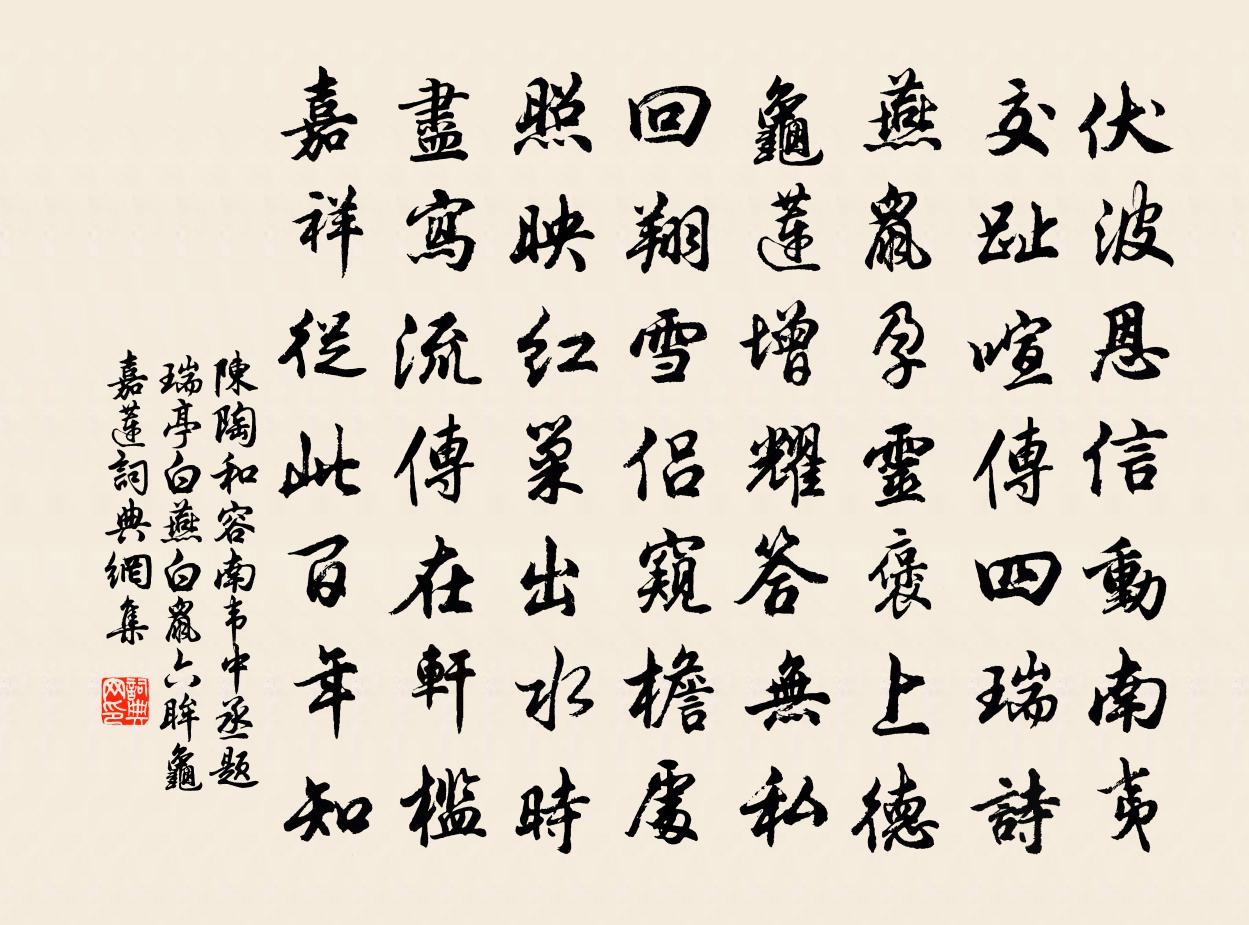 伏波恩信動南夷
交趾喧傳四瑞詩
燕鼠孕靈褒上德
龜蓮增耀答無私
回翔雪侶窺檐處
照映紅巢出水時
盡寫流傳在軒檻
嘉祥從此百年知
陳陶和容南韦中丞题
瑞亭白燕白鼠六眸龜
嘉蓮詞典網集
詞典网印